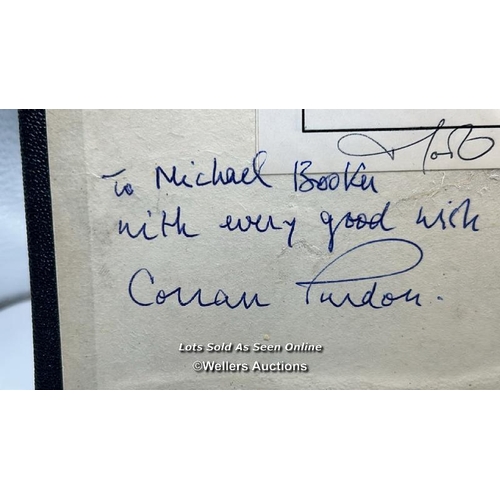 To Michael Booker
with every good wish
Corran Purdon.
Lots Sold As Seen Online
©Wellers Auctions